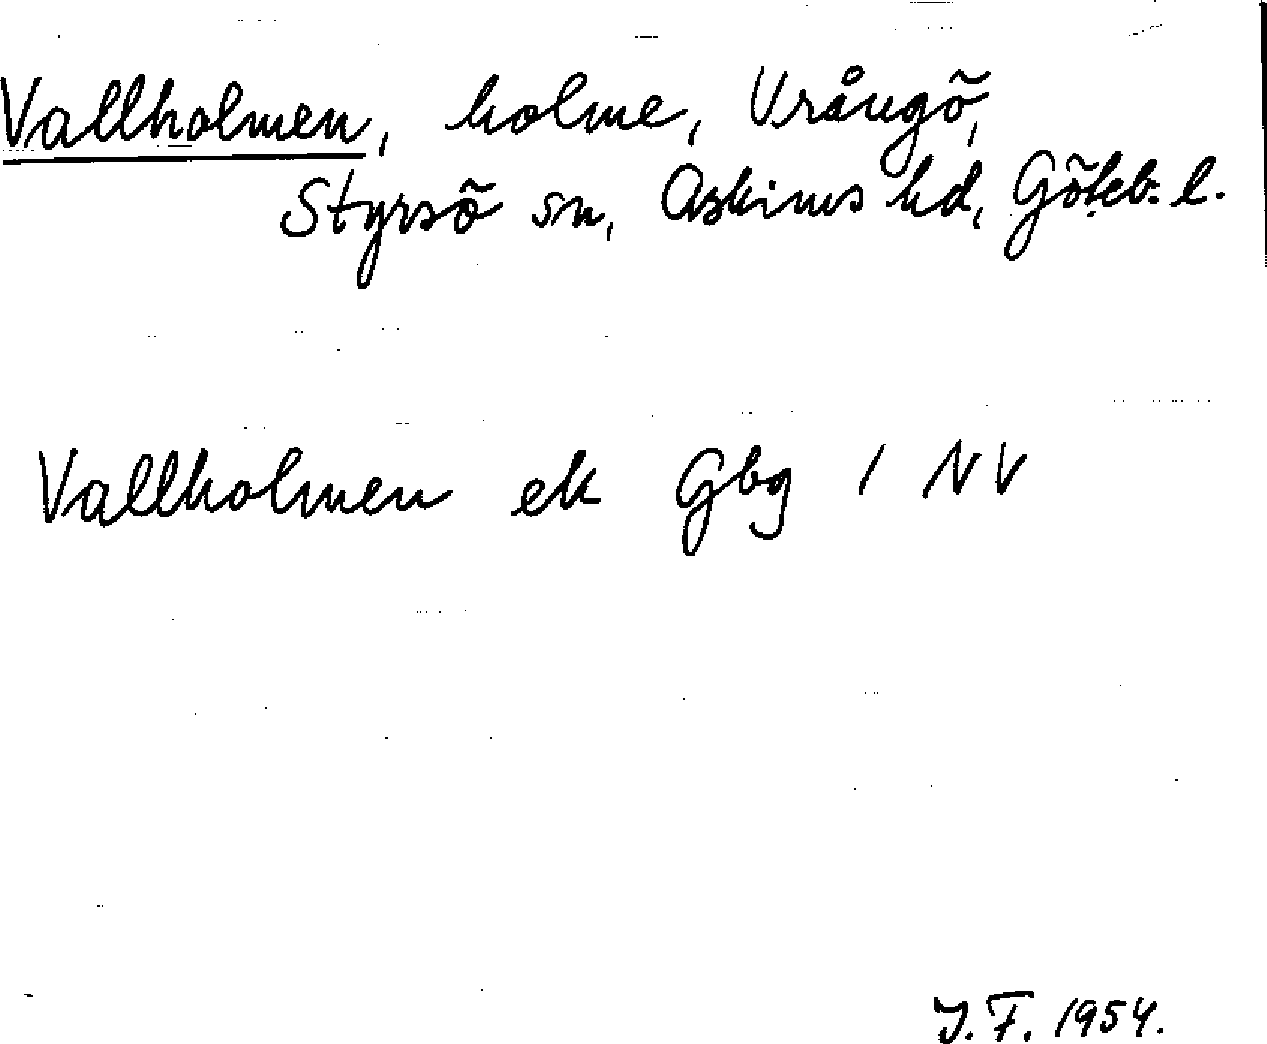 Vallholmen, holme, Vrångö,
Styrsö sn, Askims hd, Göteb:s l.
Vallholmen ek Gbg 1 NV
J.F. 1954.